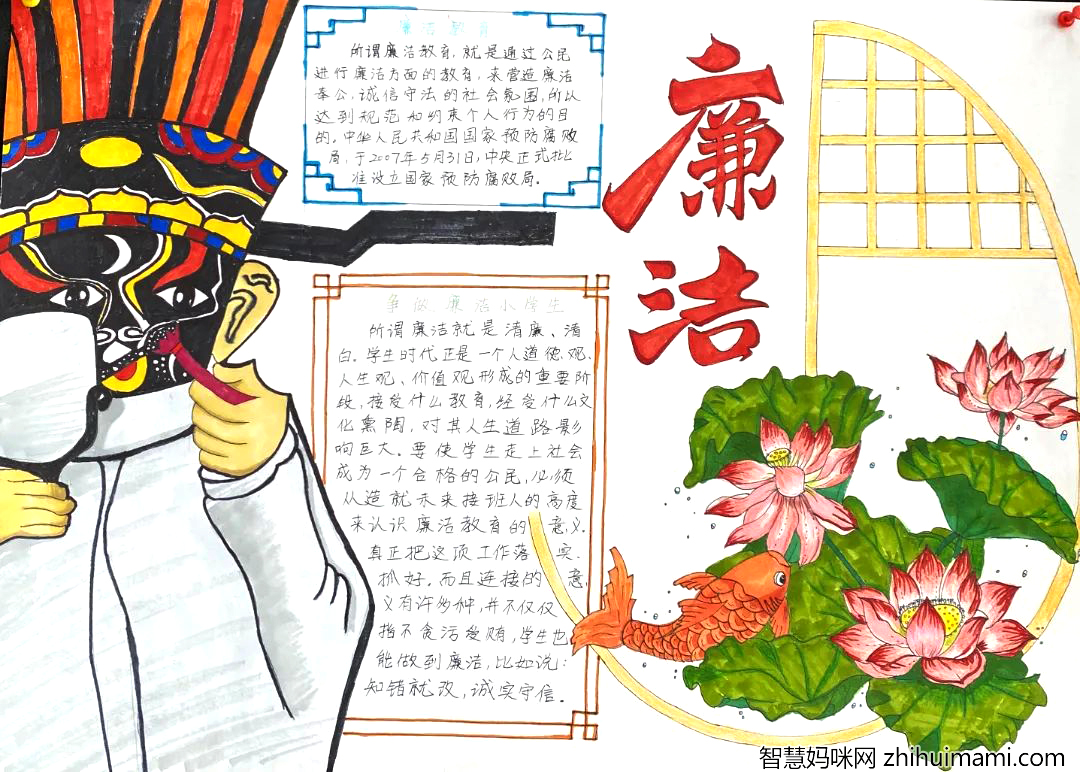 廉洁教育
所谓廉洁教育,就是通过公民
进行廉洁方面的教育,来营造廉洁
奉公,诚信守法的社会氛围,所以
达到规范和约束个人行为的目
的。中华人民共和国国家预防腐败
局,于2007年5月31日,中央正式批
准设立国家预防腐败局。
廉
洁
争做廉洁小学生
所谓廉洁就是清廉、清
白。学生时代正是一个人道德观、
人生观、价值观形成的重要阶
段,接受什么教育,经受什么文
化熏陶,对其人生道路影
响巨大。要使学生走上社会
成为一个合格的公民,必须
从造就未来接班人的高度
来认识廉洁教育的意义.
真正把这项工作落实.
抓好。而且连接的意
义有许多种,并不仅仅
指不贪污受贿,学生也
能做到廉洁,比如说:
知错就改,诚实守信。
智慧妈咪网 zhihuimami.com